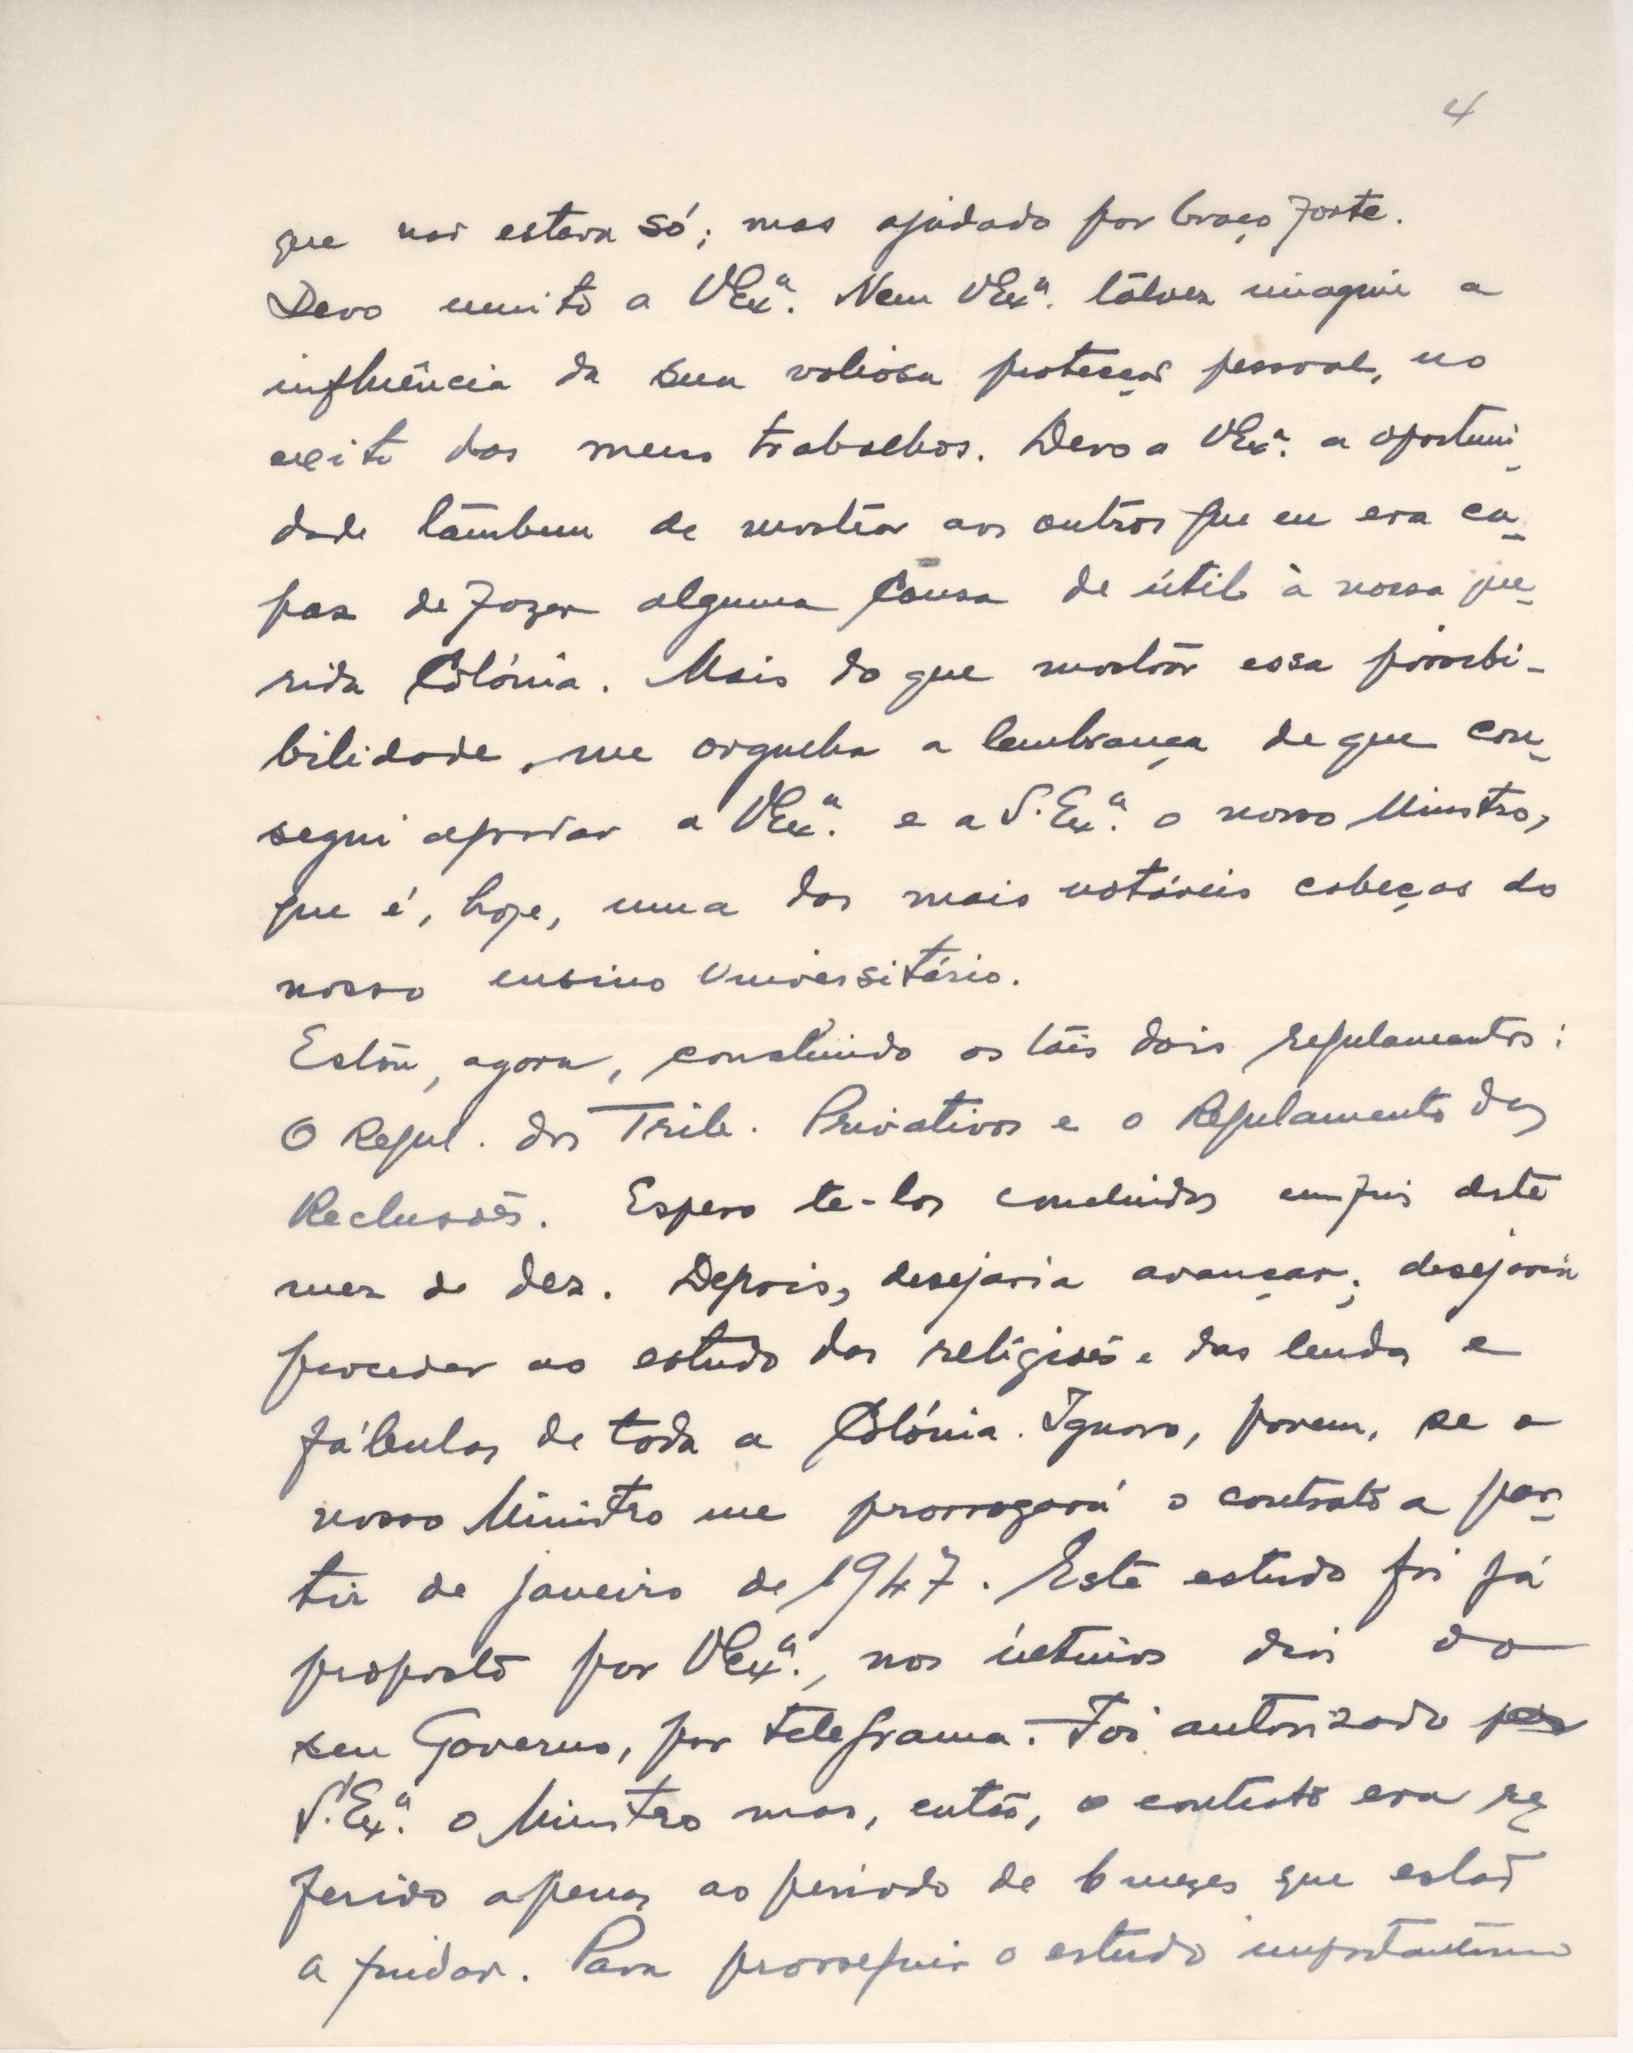 4
que não estava só; mas ajudado por braço forte.
Devo muito a VExª. Nem VExª. talvez imagine a
influência da sua valiosa protecção pessoal, no
exito dos meus trabalhos. Devo a VExª. a oportuni-
dade tambem de mostrar aos outros que eu era ca-
paz de fazer alguma Cousa de útil à nossa que-
rida Colónia. Mais do que mostrar essa possibi-
bilidade, me orgulha a lembrança de que con-
segui agradar a VExª. e a S. Exª. o nosso Ministro,
que é, hoje, uma das mais notáveis cabeças do
nosso ensino Universitário.
Estou, agora, concluindo os tais dois regulamentos:
O Regul. dos Trib. Privativos e o Regulamento das
Reclusões. Espero te-los concluidos em fins deste
mez de dez. Depois, desejaria avançar; desejaria
proceder ao estudo das religiões e das lendas e
fábulas de toda a Colónia. Ignoro, porem, se o
nosso Ministro me prorrogará o contrato a par-
tir de janeiro de 1947. Este estudo foi já
proposto por VExª., nos últimos dias do
seu Governo, por telegrama. Foi autorizado por
S. Exª. o Ministro mas, então, o contrato era re-
ferido apenas ao período de 6 mezes que estão
a findar. Para prosseguir o estudo importantissimo